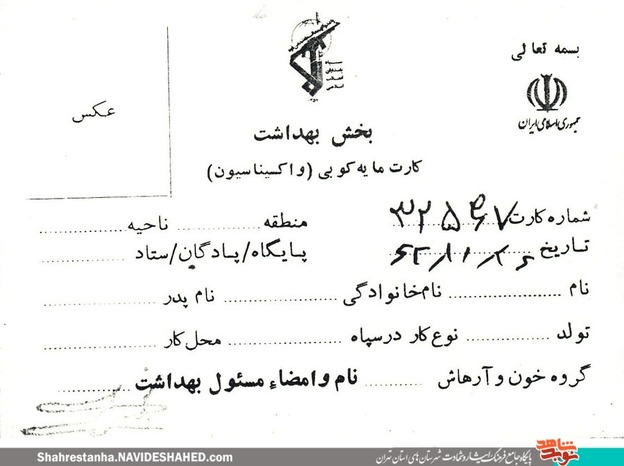 بسمه تعالی
جمهوری اسلامی ایران
سپاه پاسداران انقلاب اسلامی
عکس
بخش بهداشت
کارت مایه کوبی (واکسیناسیون)
شماره کارت ۳۲۵۴۷ منطقه ناحیه
تاریخ پایگاه/پادگان/ستاد
نام نام خانوادگی نام پدر
تولد نوع کار در سپاه محل کار
گروه خون و آرهاش نام و امضاء مسئول بهداشت
Shahrestanha.NAVIDESHAHED.com
نوید شاهد
پایگاه جامع فرهنگ ایثار و شهادت شهرستان های استان تهران